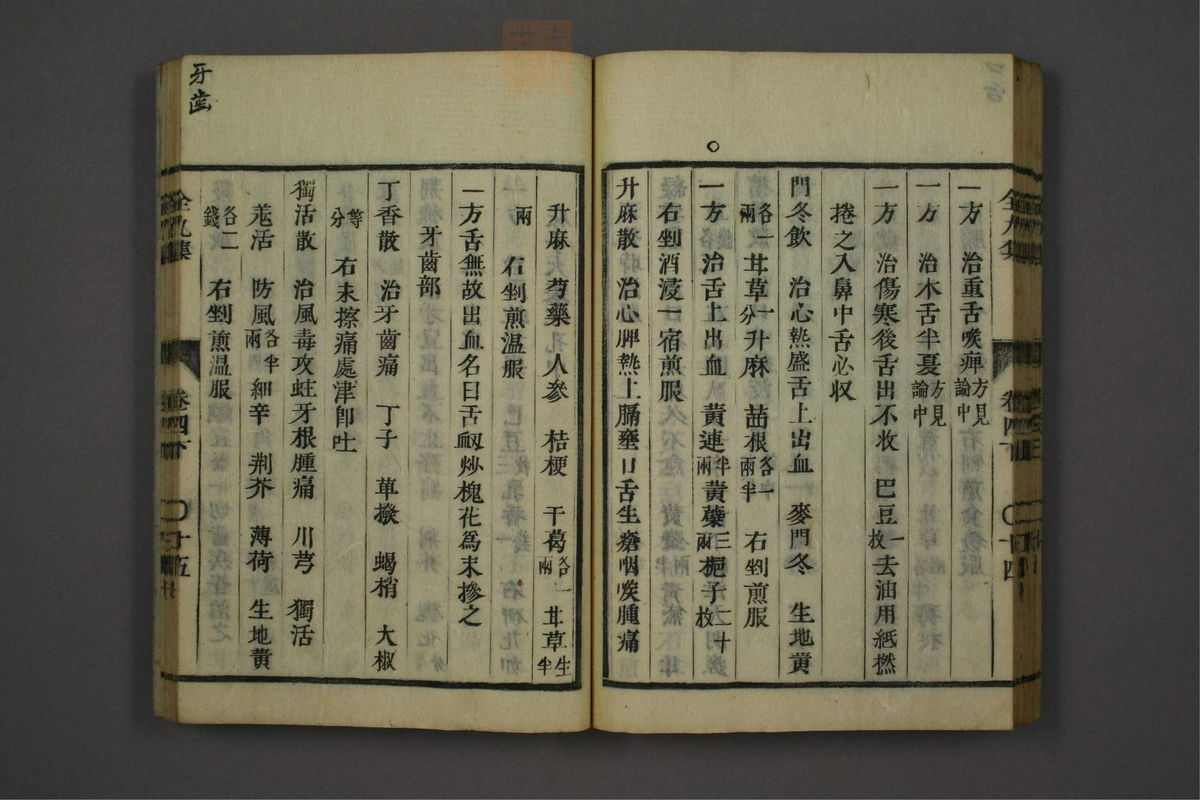 一方 治重舌喉痺方見論中
一方 治木舌半夏方見論中
一方 治傷寒後舌出不收 巴豆一枚去油用紙撚
捲之入鼻中舌必収
門冬飲 治心熱盛舌上出血 麥門冬 生地黃
各一兩 甘草一分 升麻 苗根各一兩半 右剉煎服
一方 治舌上出血 黄連半兩 黄蘗三兩 梔子二十枚
右剉酒浸一宿煎服
升麻散 治心脾熱上膈壅口舌生瘡咽喉腫痛
升麻 芍藥 人参 桔梗 干葛各一兩 甘草生半
兩 右剉煎温服
一方舌無故出血名曰舌衂炒槐花為末掺之
牙齒部
丁香散 治牙齒痛 丁子 草撥 蝎梢 大椒
等分 右末擦痛處津卽吐
獨活散 治風毒攻蛀牙根腫痛 川芎 獨活
羗活 防風各半兩 細辛 荆芥 薄荷 生地黄
各二錢 右剉煎温服
牙歯
全九集
卷四下
十五
全九集
卷四下
十四